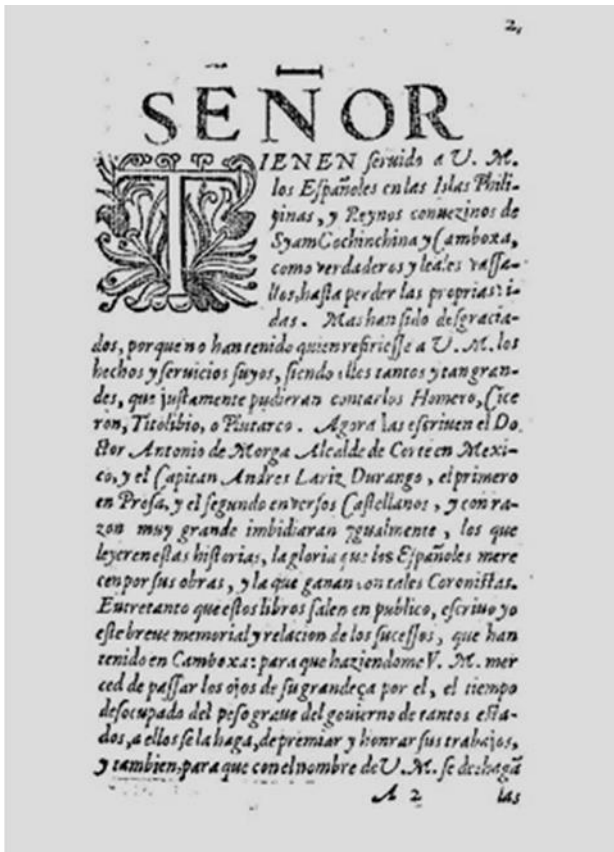 2,
SEÑOR
TIENEN ſeruido a V. M.
los Eſpañoles en las Islas Phili-
pinas, y Reynos conuezinos de
Syam Cochinchina y Camboxa,
como verdaderos y leales vaſſa-
llos, haſta perder las proprias vi-
das. Mas han ſido deſgracia-
dos, porque no han tenido quien refirieſſe a V. M. los
hechos y ſeruicios ſuyos, ſiendo ellos tantos y tan gran-
des, que juſtamente pudieran contarlos Homero, Cice
ron, Titolibio, o Plutarco. Agora las eſcriuen el Do-
ctor Antonio de Morga Alcalde de Corte en Mexi-
co, y el Capitan Andres Lariz Durango, el primero
en Proſa, y el ſegundo en verſos Caſtellanos, y con ra-
zon muy grande imbidiaran ygualmente, los que
leyeren eſtas hiſtorias, la gloria que los Eſpañoles mere
cen por ſus obras, y la que ganan con tales Coroniſtas.
Entretanto que eſtos libros ſalen en publico, eſcriuo yo
eſte breue memorial y relacion de los ſuceſſos, que han
tenido en Camboxa: para que haziendome V. M. mer
ced de paſſar los ojos de ſu grandeça por el, el tiempo
deſocupado del peſo graue del gouierno de tantos eſta-
dos, a ellos ſe la haga, de premiar y honrar ſus trabajos,
y tambien, para que con el nombre de V. M. ſe deshagã
A 2 las